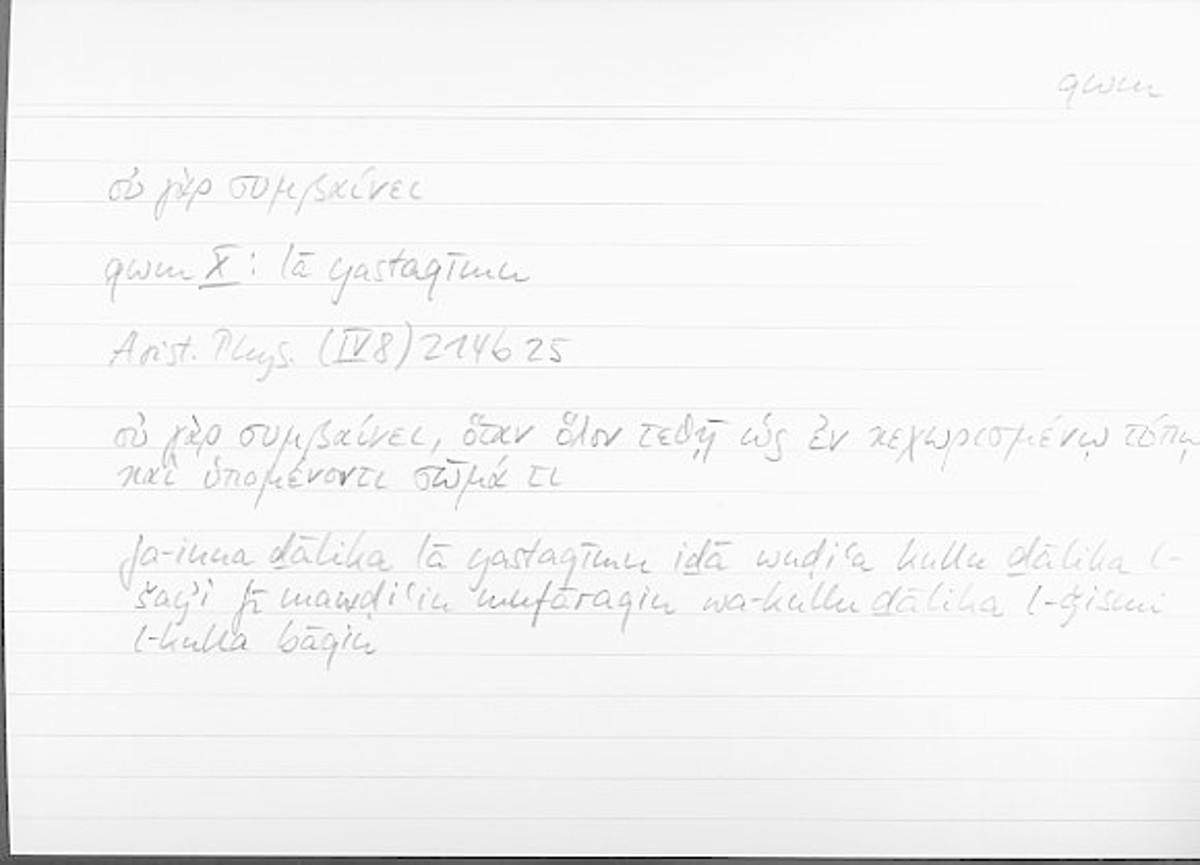 qwm
οὐ γὰρ συμβαίνει
qwm X: lā yastaqīmu
Arist. Phys. (IV 8) 214b25
οὐ γὰρ συμβαίνει, ὅταν ὅλον τεθῇ ὡς ἐν κεχωρισμένῳ τόπῳ
καὶ ὑπομένοντι σῶμά τι
fa-inna ḏālika lā yastaqīmu iḏā wuḍiʿa kullu ḏālika l-
šayʾi fī mawḍiʿin mufāraqin wa-kullu ḏālika l-ǧismi
l-kulla bāqin